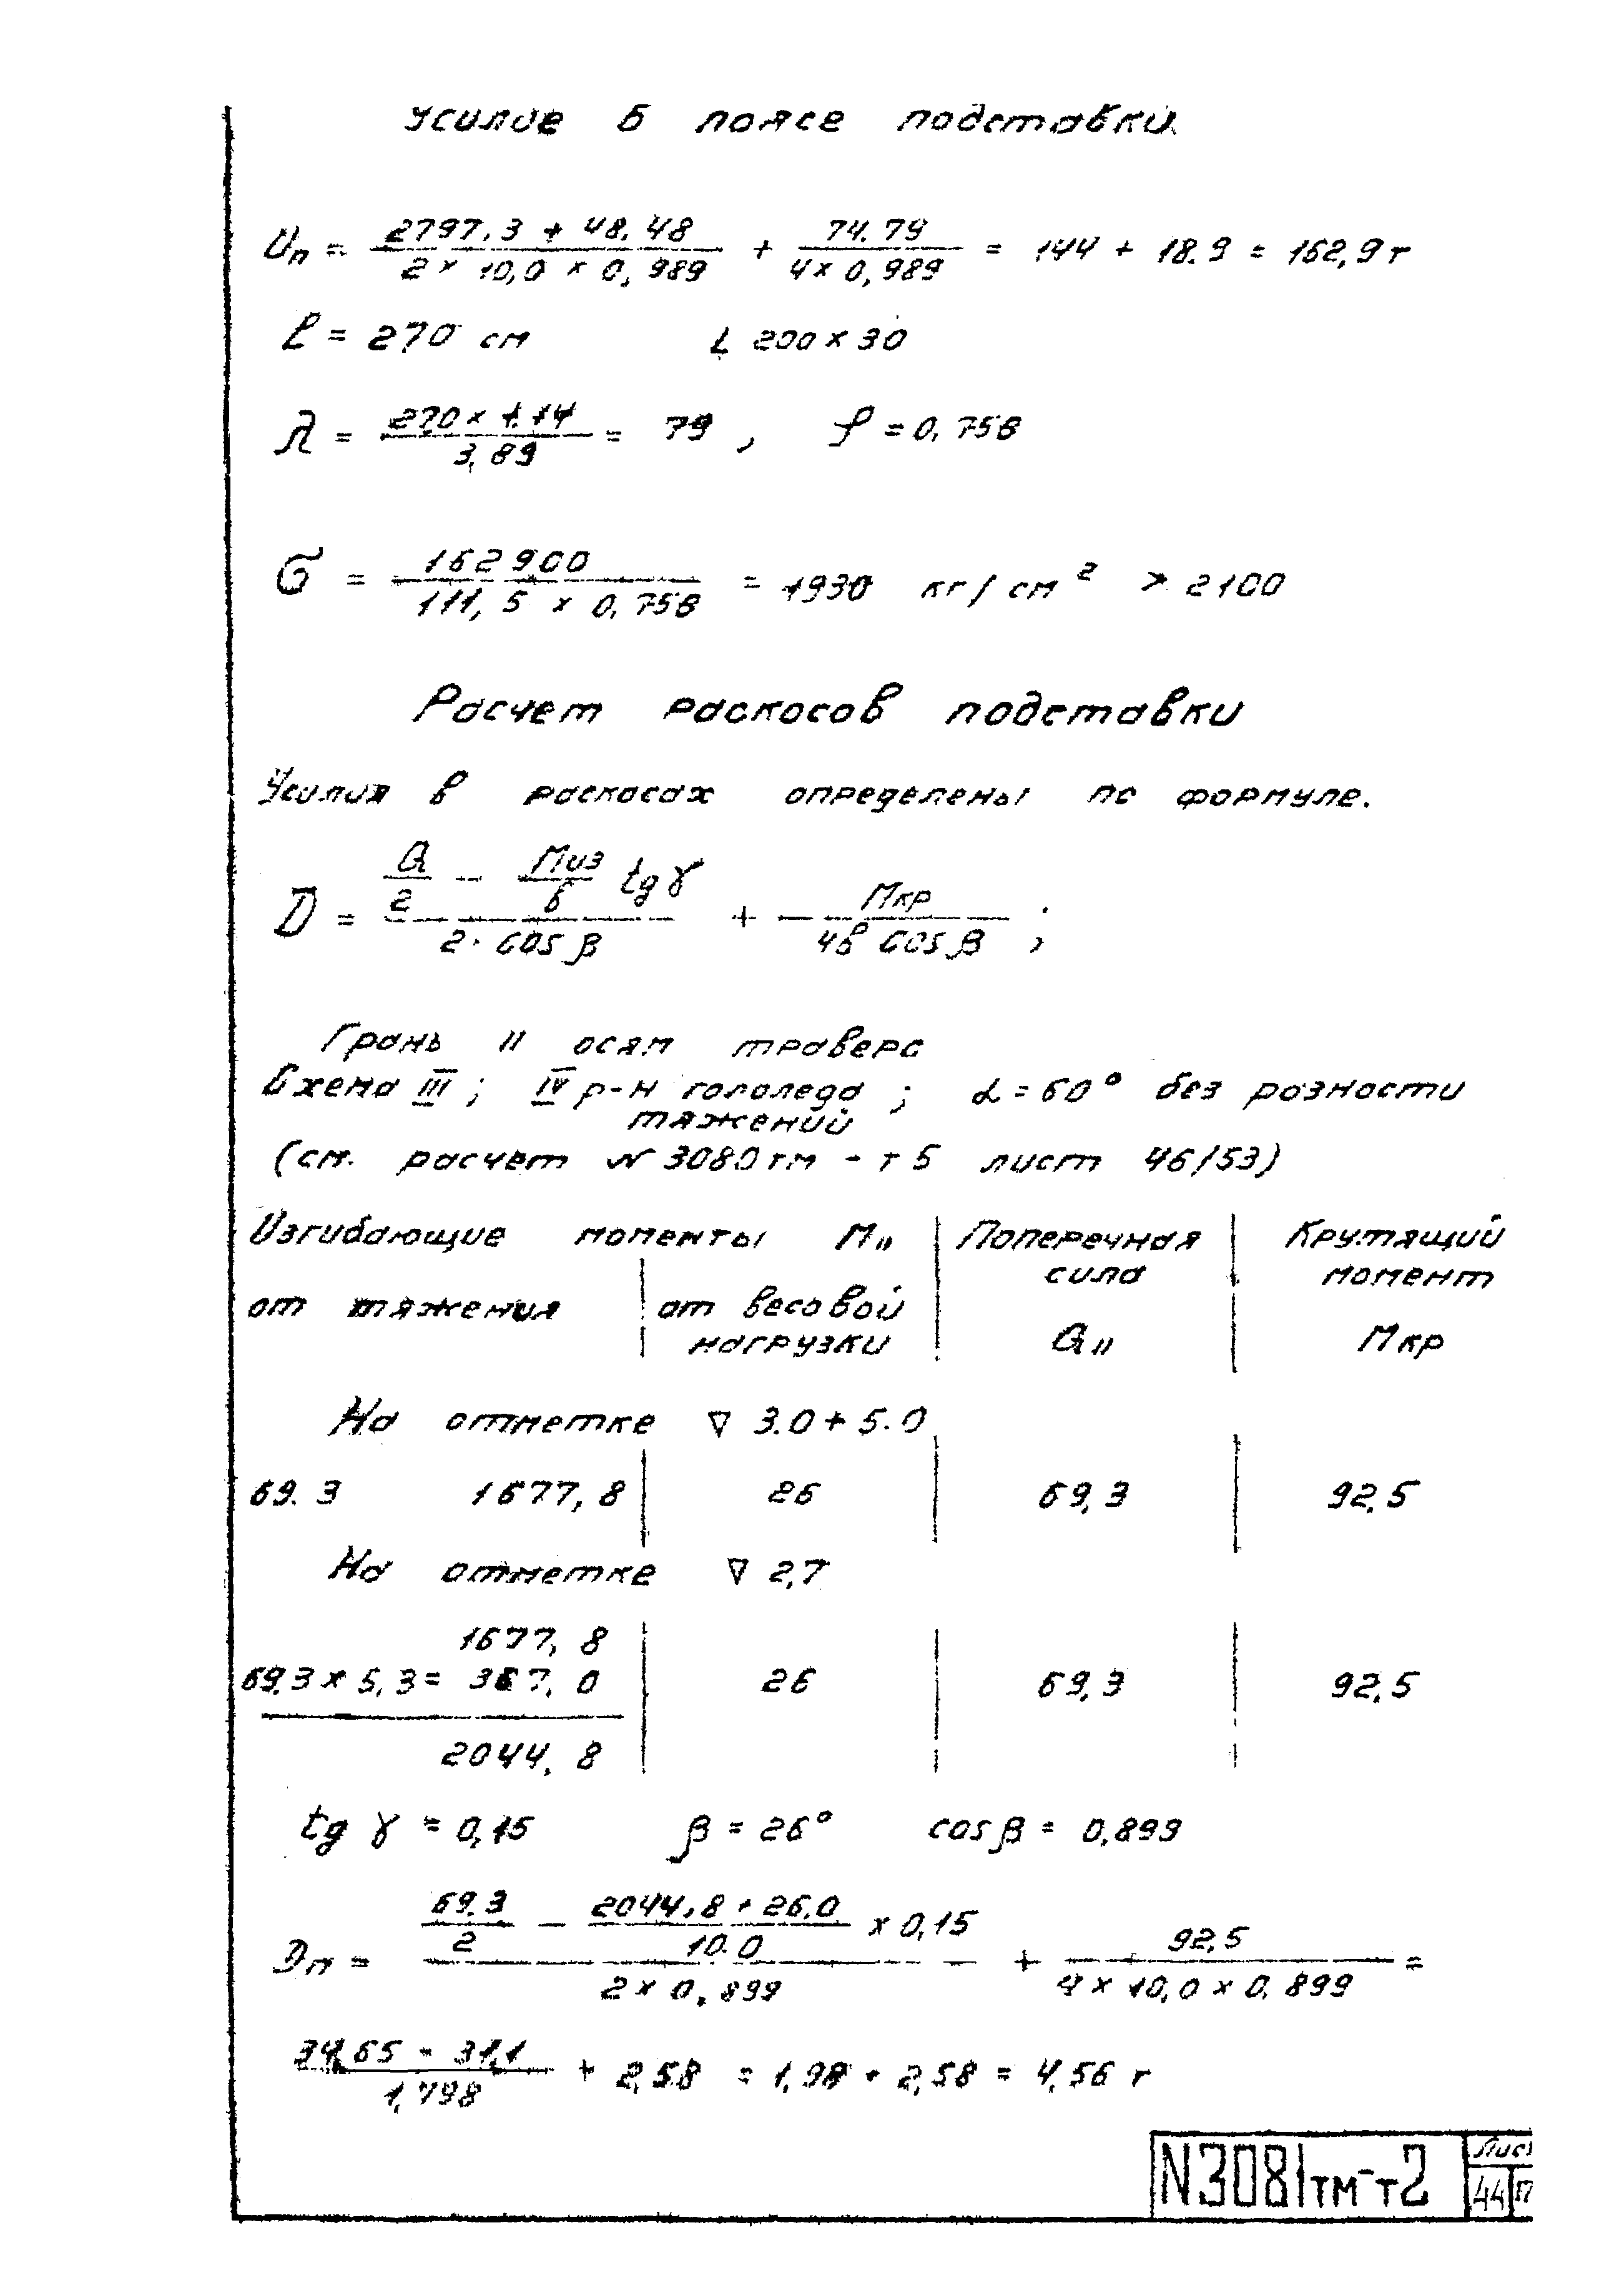 Усилие в поясе подставки
Uп = (2797,3 + 48.48) / (2 × 10,0 × 0,989) + 74.79 / (4 × 0,989) = 144 + 18.9 = 162,9 т
ℓ = 270 см L 200 × 30
λ = (270 × 1.14) / 3,89 = 79 , φ = 0,758
σ = 162900 / (111,5 × 0,758) = 1930 кг/см² > 2100
Расчет раскосов подставки
Усилия в раскосах определены по формуле.
D = (Q/2 − Миз/в tg γ) / (2 · cos β) + Мкр / (4в cos β) ;
Грань II осям траверс
Схема III ; IV р-н гололеда ; α = 60° без разности
тяжений
(см. расчет № 3080тм - т5 лист 46/53)
Изгибающие моменты М॥ | Поперечная | Крутящий
сила | момент
от тяжения | от весовой
нагрузки | Q॥ | Мкр
На отметке ∇ 3.0 + 5.0
69.3 1677,8 | 26 | 69,3 | 92,5
На отметке ∇ 2,7
1677,8
69.3 × 5,3 = 367,0 | 26 | 69,3 | 92,5
2044,8
tg γ = 0,15 β = 26° cos β = 0,899
Dп = (69.3/2 − (2044,8 + 26.0)/10.0 × 0,15) / (2 × 0,899) + 92,5 / (4 × 10,0 × 0,899) =
(34,65 - 31,1) / 1,798 + 2,58 = 1,98 + 2,58 = 4,56 т
N3081тм-т2
Лист
44